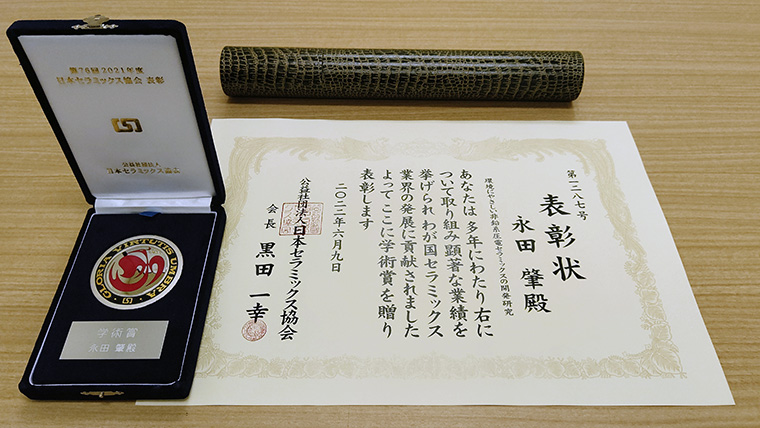 第76回 2021年度
日本セラミックス協会 表彰
公益社団法人
日本セラミックス協会
GLORIA VIRTUTIS UMBRA
学術賞
永田 肇殿
第一二八七号
表彰状
永田 肇殿
環境にやさしい非鉛系圧電セラミックスの開発研究
あなたは 多年にわたり 右に
ついて取り組み 顕著な業績を
挙げられ わが国セラミックス
業界の発展に貢献されました
よって ここに学術賞を贈り
表彰します
二〇二二年六月九日
公益社団法人日本セラミックス協会
会長 黒田 一幸